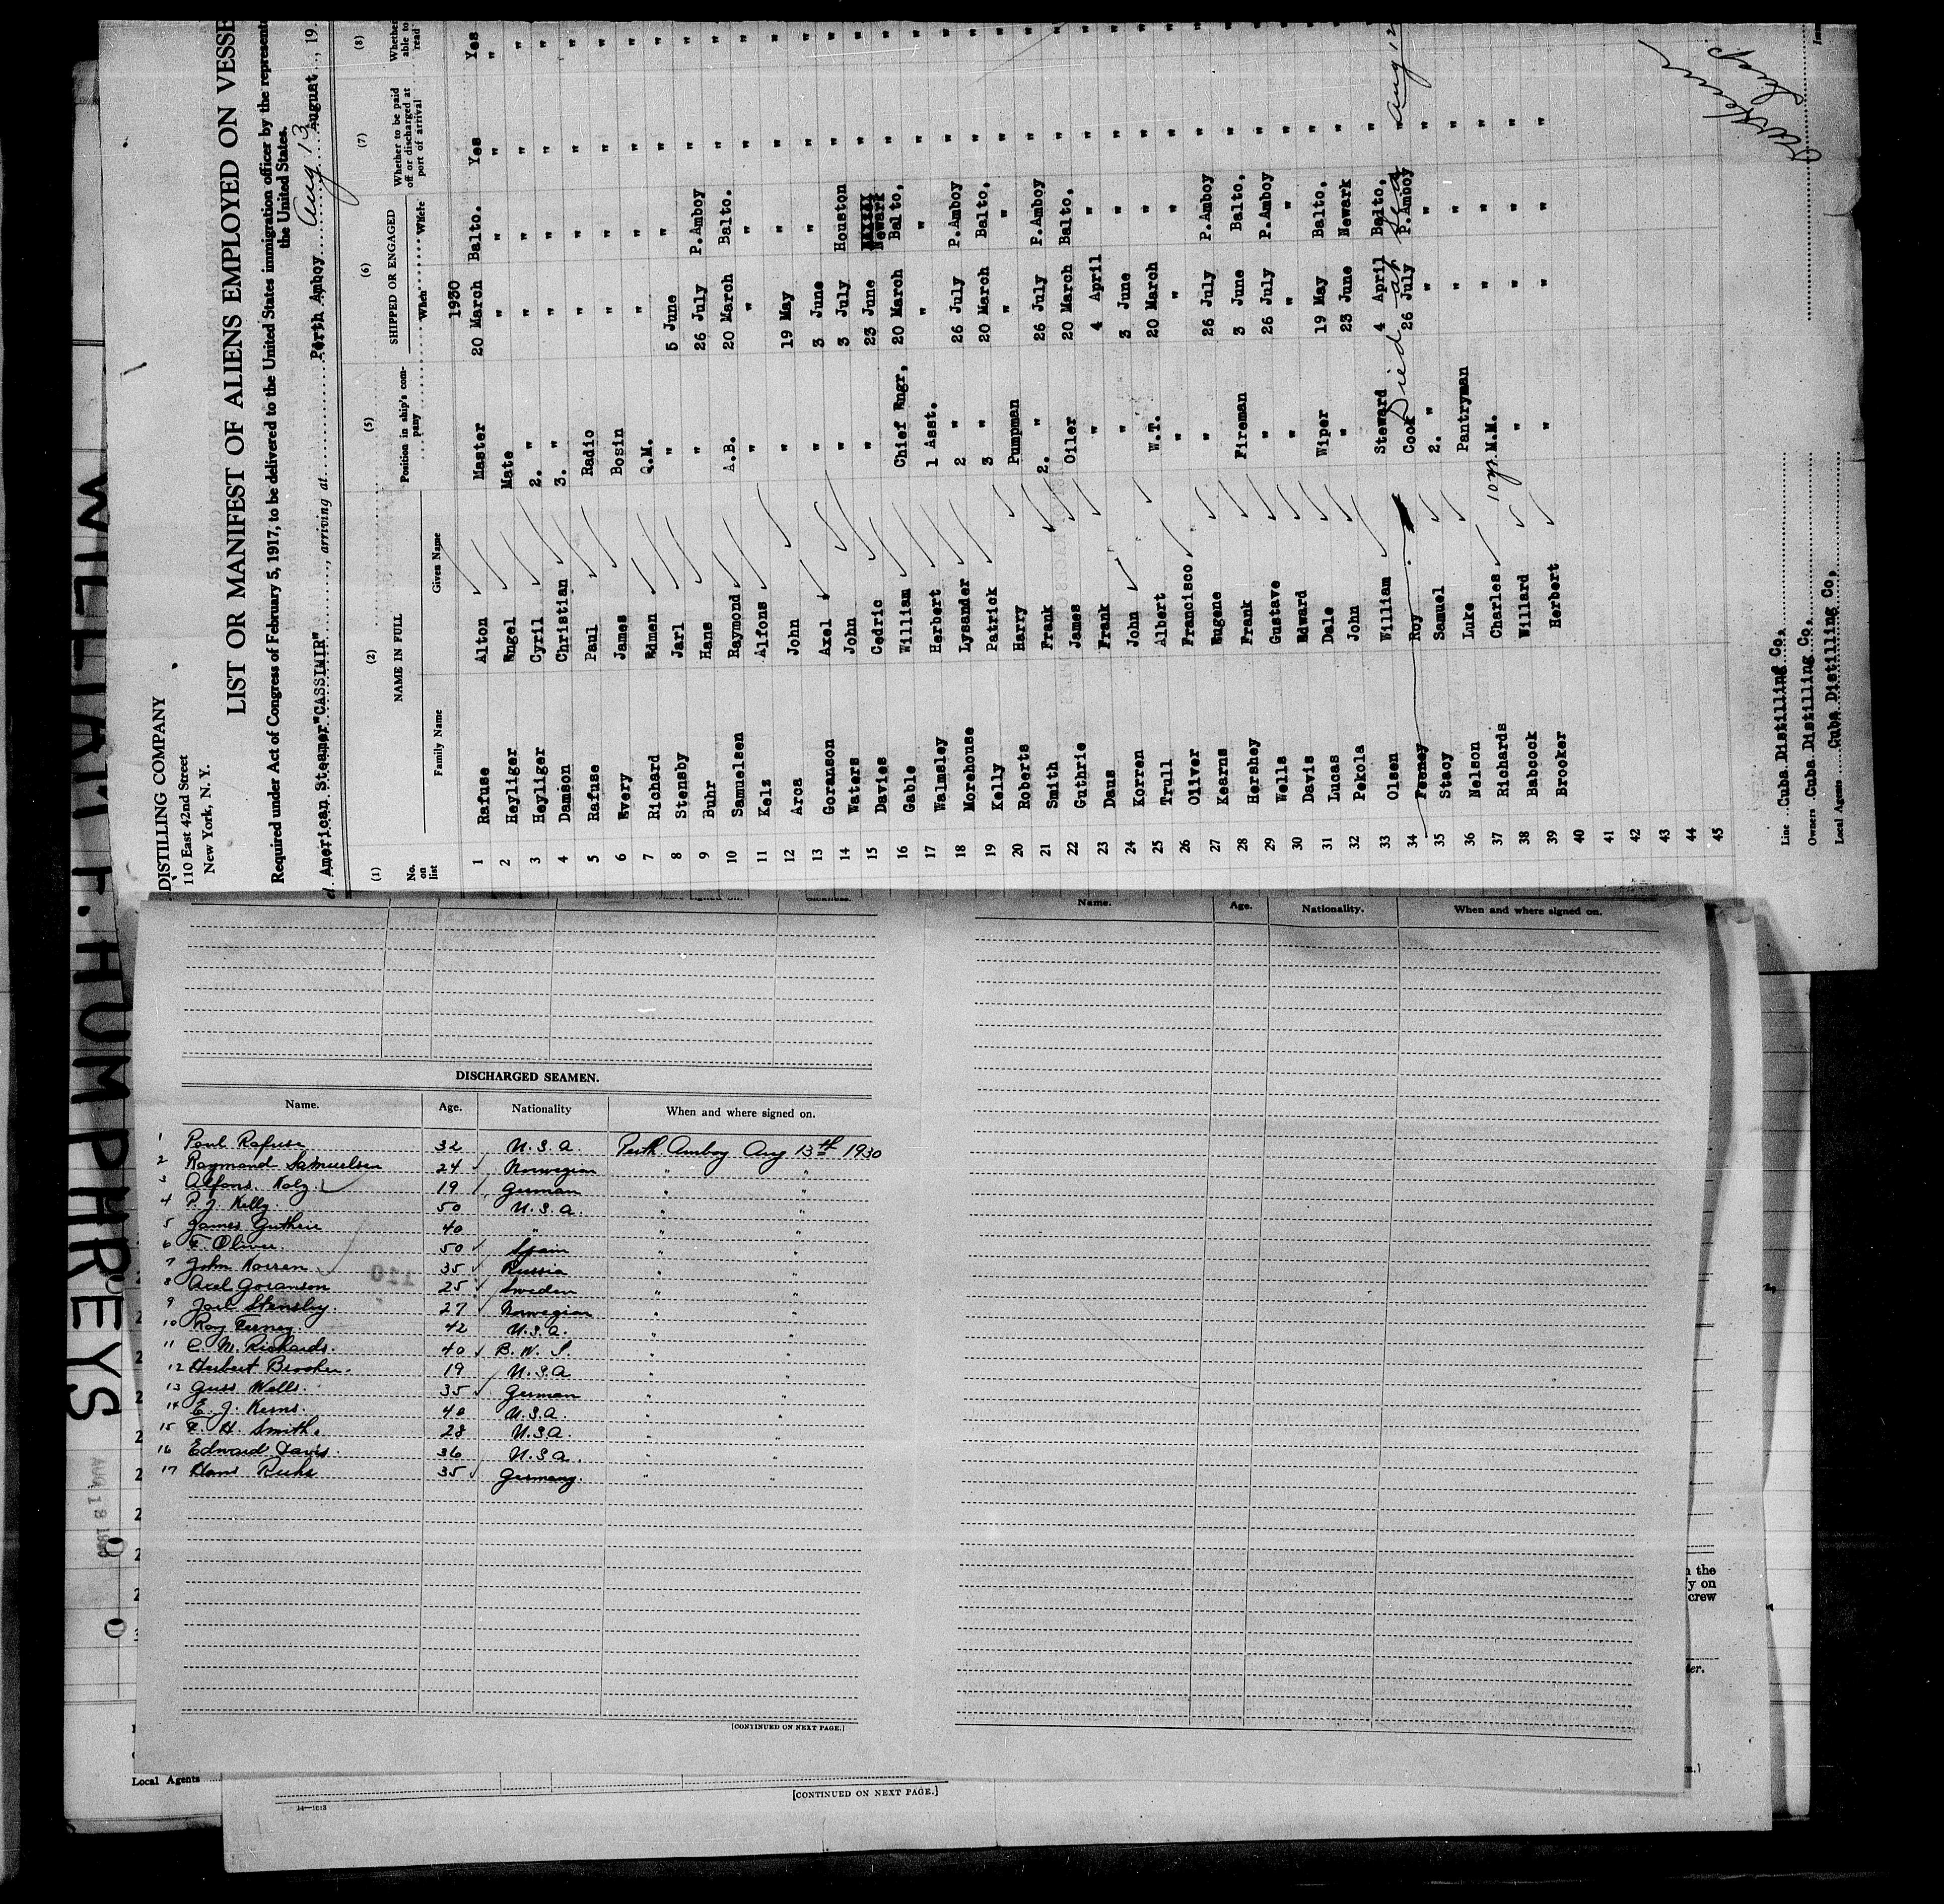 DISTILLING COMPANY
110 East 42nd Street
New York, N. Y.
LIST OR MANIFEST OF ALIENS EMPLOYED ON VESSE
Required under Act of Congress of February 5, 1917, to be delivered to the United States immigration officer by the represent
the United States.
American Steamer "CASSIMIR", arriving at Perth Amboy Aug 13 August, 19
(1) (2) (5) (6) (7) (8)
No. on list NAME IN FULL Position in ship's company SHIPPED OR ENGAGED Whether to be paid off or discharged at port of arrival Whether able to read
Family Name Given Name When Where
1930
1 Rafuse Alton Master 20 March Balto. Yes Yes
2 Heyliger Engel Mate " " " "
3 Heyliger Cyril 2. " " " " "
4 Damson Christian 3. " " " " "
5 Rafuse Paul Radio " " " "
6 Every James Bosin " " " "
7 Richard Edmen Q.M. " " " "
8 Stensby Jarl " 5 June " " "
9 Buhr Hans " 26 July P.Amboy " "
10 Samuelsen Raymond A.B. 20 March Balto. " "
11 Kelz Alfons " " " " "
12 Arca John " 19 May " " "
13 Goranson Axel " 3 June " " "
14 Waters John " 3 July Houston " "
15 Davies Cedric " 23 June Newark " "
16 Gable William Chief Engr, 20 March Balto, " "
17 Walmsley Herbert 1 Asst. " " " "
18 Morehouse Lysander 2 " 26 July P.Amboy " "
19 Kelly Patrick 3 " 20 March Balto, " "
20 Roberts Harry Pumpman " " " "
21 Smith Frank 2. " 26 July P.Amboy " "
22 Guthrie James Oiler 20 March Balto, " "
23 Daus Frank " 4 April " " "
24 Korren John " 3 June " " "
25 Trull Albert W.T. 20 March " " "
26 Oliver Francisco " " " " "
27 Kearns Eugene " 26 July P.Amboy " "
28 Hershey Frank Fireman 3 June Balto, " "
29 Wells Gustave " 26 July P.Amboy " "
30 Davis Edward " " " " "
31 Lucas Dale Wiper 19 May Balto, " "
32 Pekola John " 23 June Newark " "
33 Olsen William Steward 4 April Balto, " "
34 Feeney Roy Cook 26 July P.Amboy " Died at sea Aug 12
35 Stacy Samuel 2. " " " "
36 Nelson Luke Pantryman " " "
37 Richards Charles 10 yr. M.M. " " "
38 Babcock Willard " " " "
39 Brooker Herbert " " " "
40
41
42
43
44
45
Line Cuba Distilling Co,
Owners Cuba Distilling Co.
Local Agents Cuba Distilling Co,
WILLIAM F. HUMPHREYS
Name. Age. Nationality. When and where signed on.
DISCHARGED SEAMEN.
Name. Age. Nationality When and where signed on.
1 Paul Rafuse 32 U.S.A. Perth Amboy Aug 13th 1930
2 Raymond Samuelsen 24 Norwegian " "
3 Alfons Kolz 19 German " "
4 P. J. Kelly 50 U.S.A. " "
5 James Guthrie 40 " " "
6 F. Oliver 50 Spain " "
7 John Korren 35 Russia " "
8 Axel Goranson 25 Sweden " "
9 Jarl Stensby 27 Norwegian " "
10 Roy Feeney 42 U.S.A. " "
11 C. M. Richards 40 B.W.I. " "
12 Herbert Brooker. 19 U.S.A " "
13 Guss Wells. 35 German " "
14 E. J. Kerns. 40 U.S.A. " "
15 F. H. Smith. 28 U.S.A. " "
16 Edward Davis. 36 U.S.A. " "
17 Hans 35 Germany. " "
110
AUG 18 1930
[CONTINUED ON NEXT PAGE.]
n the
y on
crew
Local Agents
14—1813
[CONTINUED ON NEXT PAGE.]